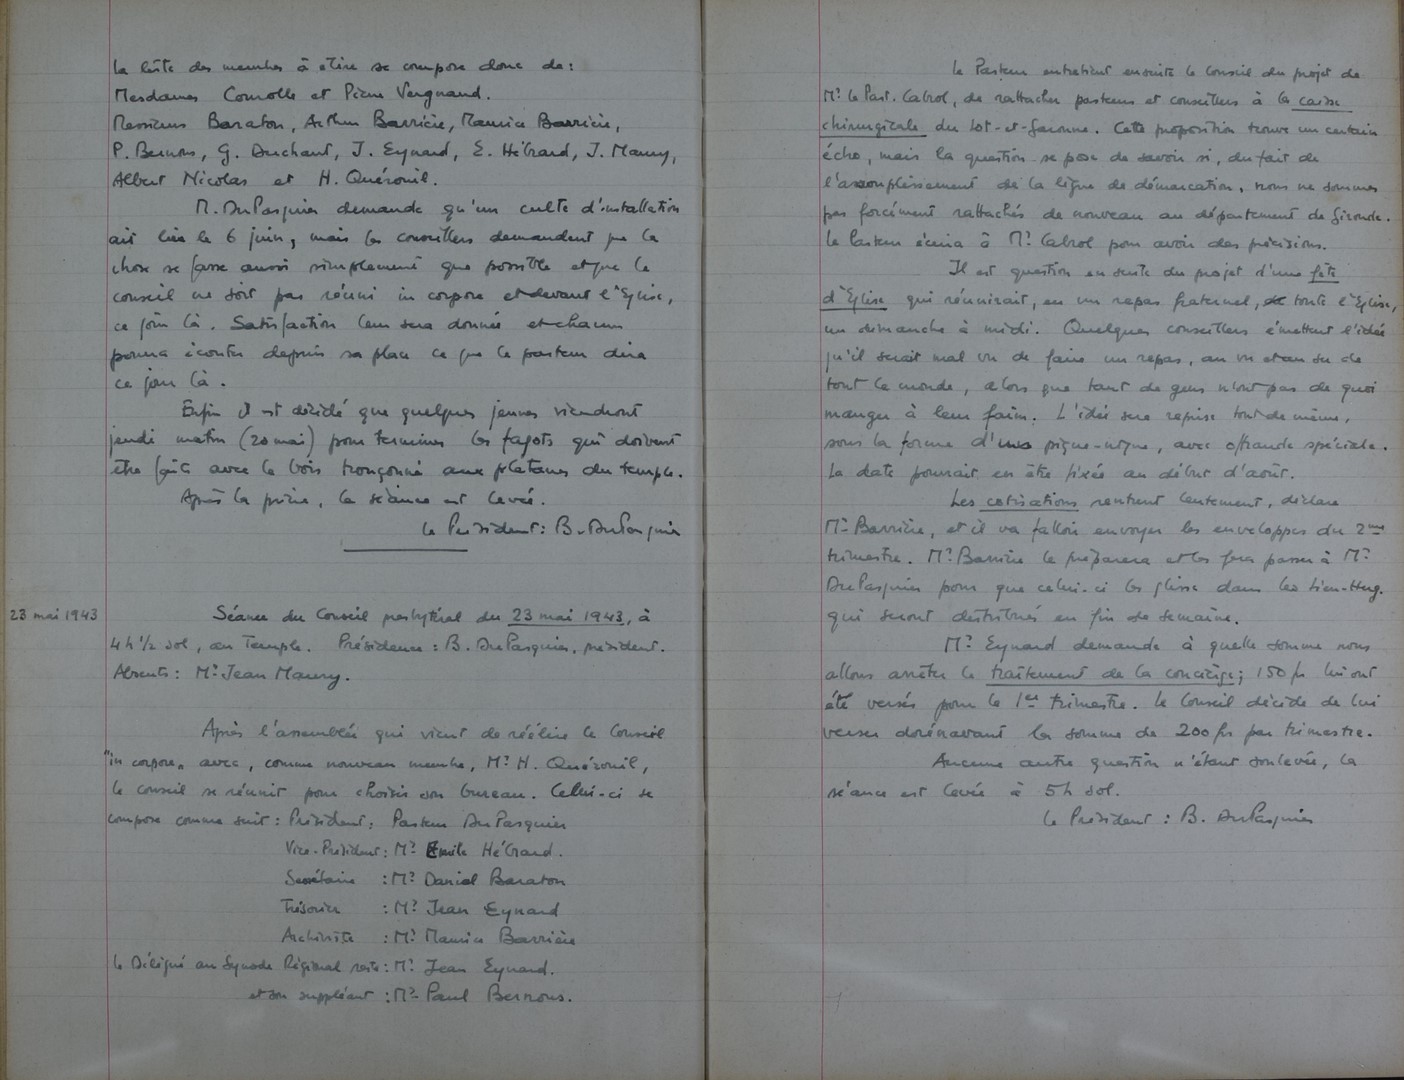 La liste des membres à élire se compose donc de :
Mesdames Comolle et Pierre Vergnaud.
Messieurs Baraton, Arthur Barrière, Maurice Barrière,
P. Bernous, G. Duchant, J. Eynard, E. Hébrard, J. Maury,
Albert Nicolas et H. Quérouil.
M. DuPasquier demande qu'un culte d'installation
ait lieu le 6 juin, mais les conseillers demandent que la
chose se fasse aussi simplement que possible et que le
conseil ne soit pas réuni in corpore et devant l'Eglise,
ce jour là. Satisfaction leur sera donnée et chacun
pourra écouter depuis sa place ce que le pasteur dira
ce jour là.
Enfin il est décidé que quelques jeunes viendront
jeudi matin (20 mai) pour terminer les fagots qui doivent
être faits avec le bois tronçonné aux platanes du temple.
Après la prière, la séance est levée.
Le Président : B. DuPasquier
23 mai 1943
Séance du Conseil presbytéral du 23 mai 1943, à
4 h ½ sol, au Temple. Présidence : B. DuPasquier, président.
Absents : Mr Jean Maury.
Après l'assemblée qui vient de réélire le Conseil
"in corpore" avec, comme nouveau membre, Mr H. Quérouil,
le conseil se réunit pour choisir son bureau. Celui-ci se
compose comme suit : Président : Pasteur DuPasquier
Vice-Président : Mr Emile Hébrard.
Secrétaire : Mr Daniel Baraton
Trésorier : Mr Jean Eynard
Archiviste : Mr Maurice Barrière
Le Délégué au Synode Régional reste : Mr Jean Eynard.
et son suppléant : Mr Paul Bernous.
Le Pasteur entretient ensuite le Conseil du projet de
Mr le Past. Cabrol, de rattacher pasteurs et conseillers à la caisse
chirurgicale du Lot-et-Garonne. Cette proposition trouve un certain
écho, mais la question se pose de savoir si, du fait de
l'assouplissement de la ligne de démarcation, nous ne sommes
pas forcément rattachés de nouveau au département de Gironde.
Le Pasteur écrira à Mr Cabrol pour avoir des précisions.
Il est question ensuite du projet d'une fête
d'Eglise qui réunirait, en un repas fraternel, toute l'Eglise,
un dimanche à midi. Quelques conseillers émettent l'idée
qu'il serait mal vu de faire un repas, au vu et au su de
tout le monde, alors que tant de gens n'ont pas de quoi
manger à leur faim. L'idée sera reprise tout de même,
sous la forme d'un pique-nique, avec offrande spéciale.
La date pourrait en être fixée au début d'août.
Les cotisations rentrent lentement, déclare
Mr Barrière, et il va falloir envoyer les enveloppes du 2me
trimestre. Mr Barrière le préparera et les fera passer à Mr
DuPasquier pour que celui-ci les glisse dans les Lien-Hug.
qui seront distribués en fin de semaine.
Mr Eynard demande à quelle somme nous
allons arrêter le traitement de la concierge ; 150 frs lui ont
été versés pour le 1er trimestre. Le Conseil décide de lui
verser dorénavant la somme de 200 frs par trimestre.
Aucune autre question n'étant soulevée, la
séance est levée à 5 h sol.
Le Président : B. DuPasquier